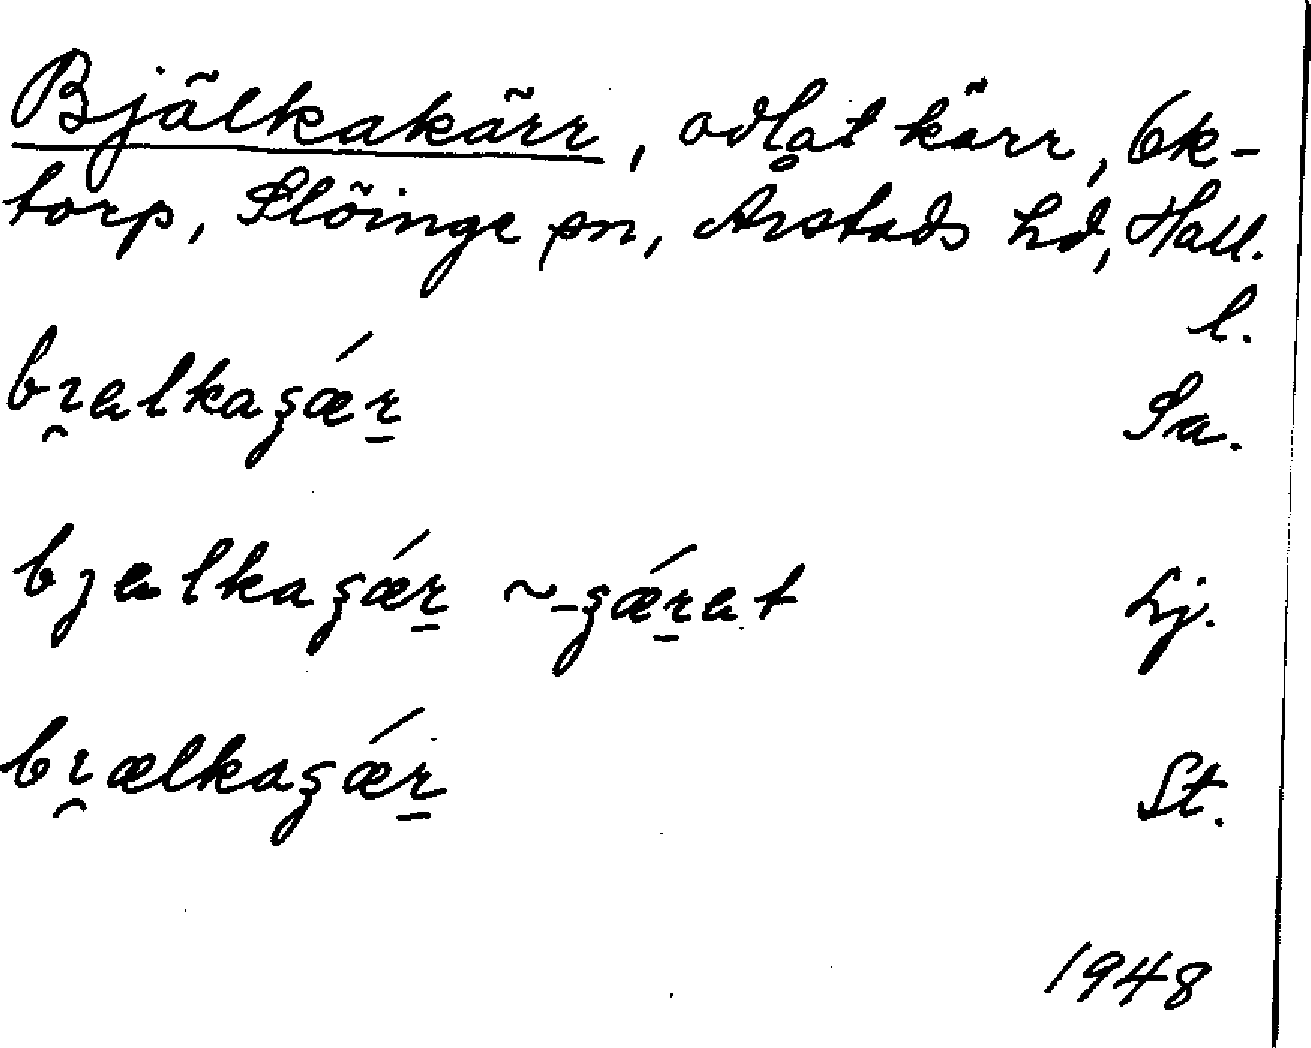 Bjälkakärr, odlat kärr, Ök-
torp, Slöinge sn, Årstads hd, Hall.
l.
bɪ̯alkaʂǽr̠ Sa.
bȷalkaʂǽr̠ ~ -ʂǽr̠at Lj.
bɪ̯ælkaʂǽr̠ St.
1948